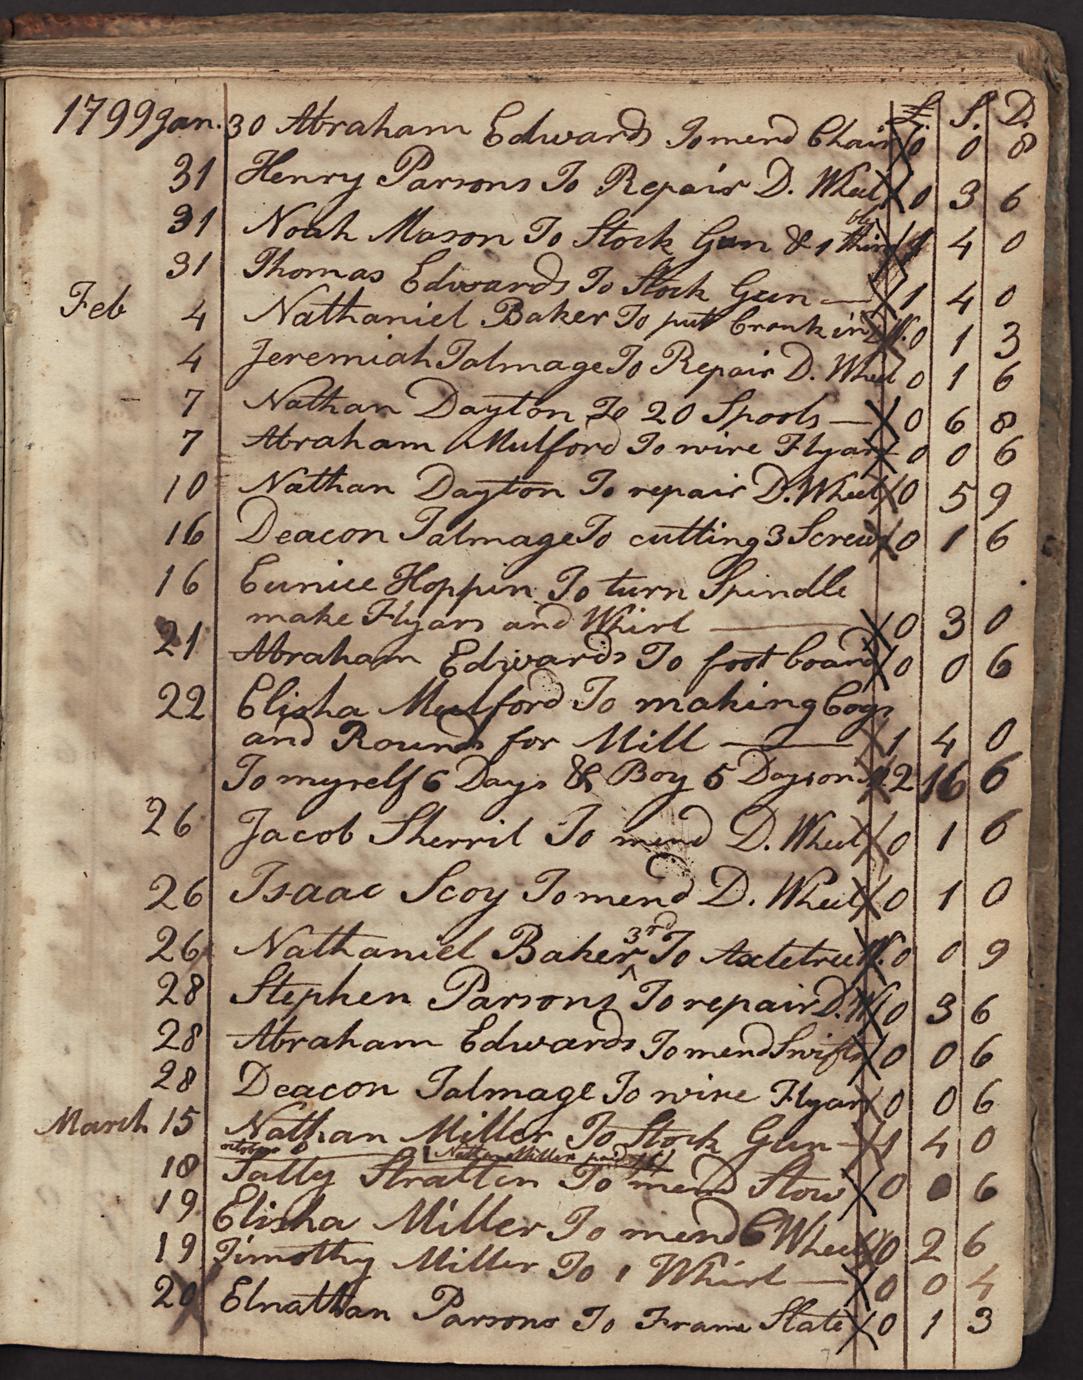 £. S. D.
1799 Jan. 30 Abraham Edwards To mend Chair 0 0 8
31 Henry Parsons To Repair D. Wheel 0 3 6
31 Noah Mason To Stock Gun & 1 4 0
31 Thomas Edwards To Stock Gun — 1 4 0
Feb 4 Nathaniel Baker To put Crank in D W. 0 1 3
4 Jeremiah Talmage To Repair D. Wheel 0 1 6
7 Nathan Dayton To 20 Spools — 0 6 8
7 Abraham Mulford To wire Flyar 0 0 6
10 Nathan Dayton To repair D. Wheel 0 5 9
16 Deacon Talmage To cutting 3 Screws 0 1 6
16 Eunice Hoppin To turn Spindle
make Flyars and Whirl — 0 3 0
21 Abraham Edwards To foot board 0 0 6
22 Elisha Mulford To making Cogs
and Rounds for Mill — 1 4 0
To myself 6 Days & Boy 5 Days on 2 16 6
26 Jacob Sherril To mend D. Wheel 0 1 6
26 Isaac Scoy To mend D. Wheel 0 1 0
26 Nathaniel Baker 3rd To Axletree W. 0 0 9
28 Stephen Parsons To repair D. W 0 3 6
28 Abraham Edwards To mend Swifts 0 0 6
28 Deacon Talmage To wire Flyar 0 0 6
March 15 Nathan Miller To Stock Gun — 1 4 0
Nathan Miller paid
18 Sally Stratten To mend Stow 0 0 6
19 Elisha Miller To mend C Wheel 0 2 6
19 Timothy Miller To 1 Whirl — 0 0 4
20 Elnathan Parsons To Frame Slate 0 1 3